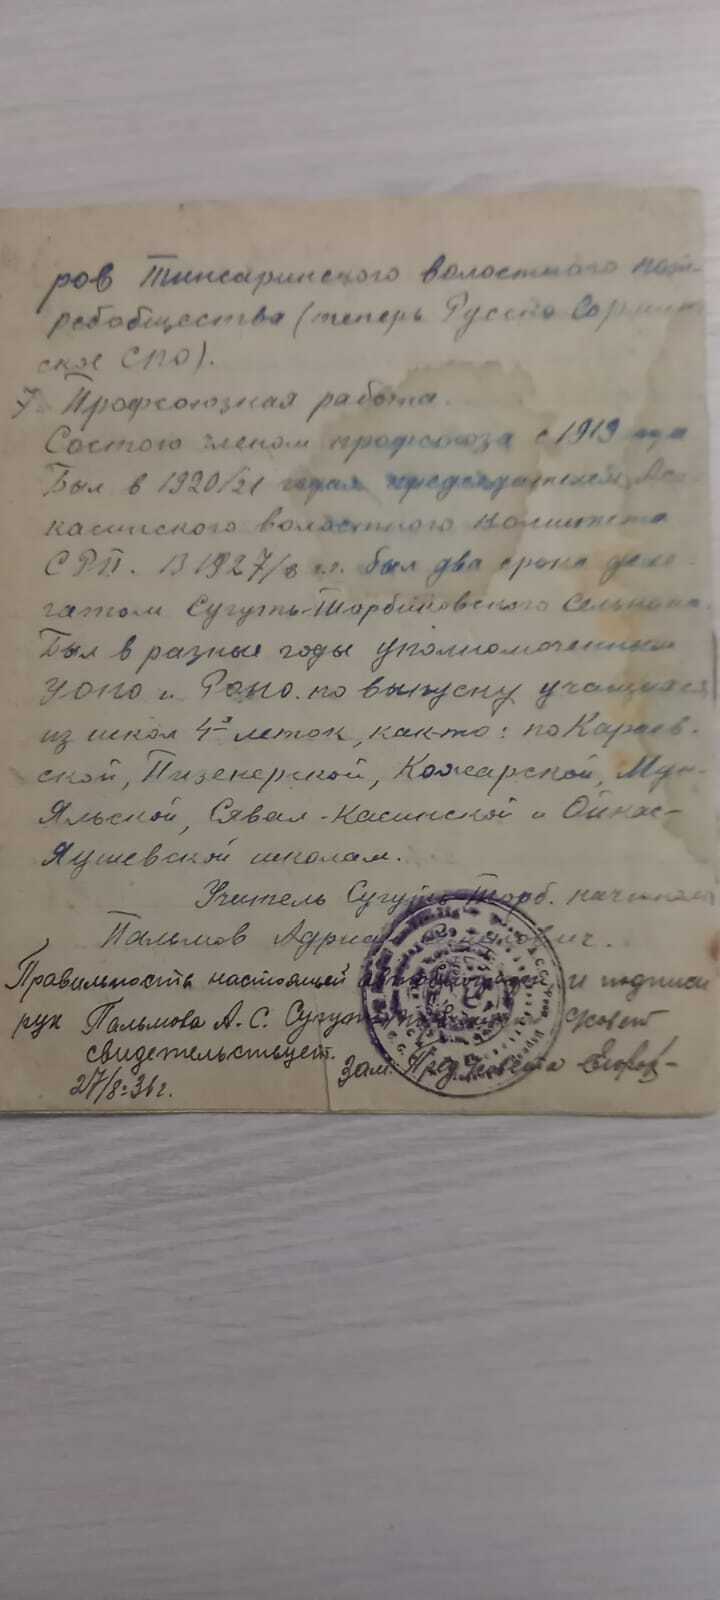 ров Тинсаринского волостного пот-
ребобщества (теперь Русско Сормин-
ское СПО).
7. Профсоюзная работа.
Состою членом профсоюза с 1919 года
Был в 1920/21 годах председателем Ас-
касинского волостного комитета
СРП. В 1927/8 г.г. был два срока деле-
гатом Сугуть-Торбиковского сельпо
Был в разные годы уполномоченным
УОНО и РОНО по выпуску учащихся
из школ 4х леток, как-то: по Караев-
ской, Пизенерской, Кожарской, Мун-
Яльской, Сявал-Касинской и Ойкас-
Яушевской школам.
Учитель Сугуть-Торб. начшколы
Пальмов Адриан
Правильность настоящей автобиографии и подписи
рук Пальмова А. С. Сугуть
свидетельствует.
27/8-36 г.
Зам. Пред. совета